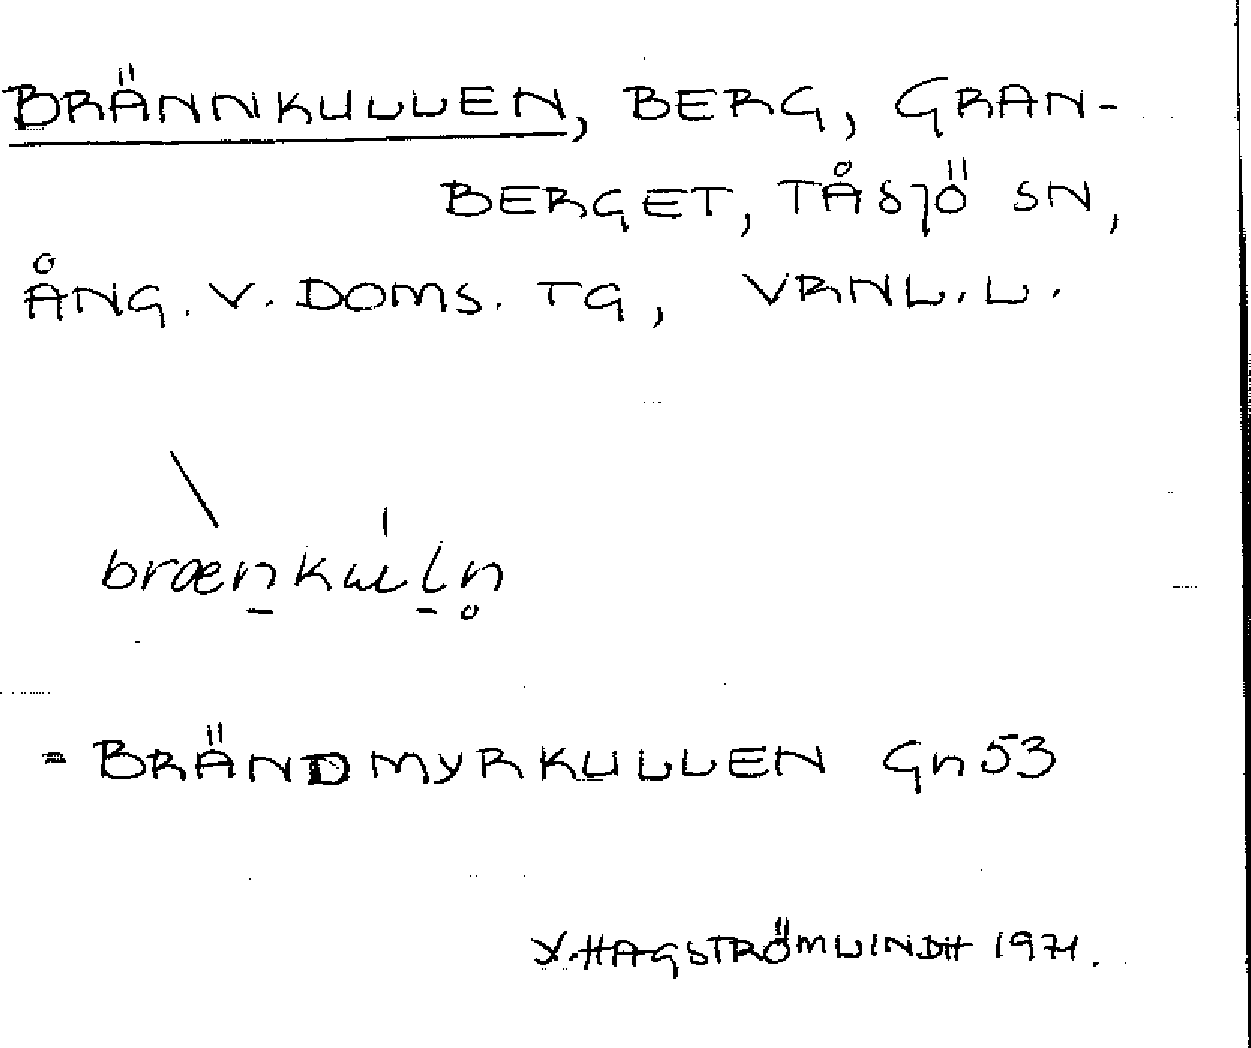 BRÄNNKULLEN, BERG, GRAN-
BERGET, TÅSJÖ SN,
ÅNG. V. DOMS. TG, VRNL. L.
= BRÄNDMYRKULLEN Gn 53
HAGSTRÖM LINDH 1971.